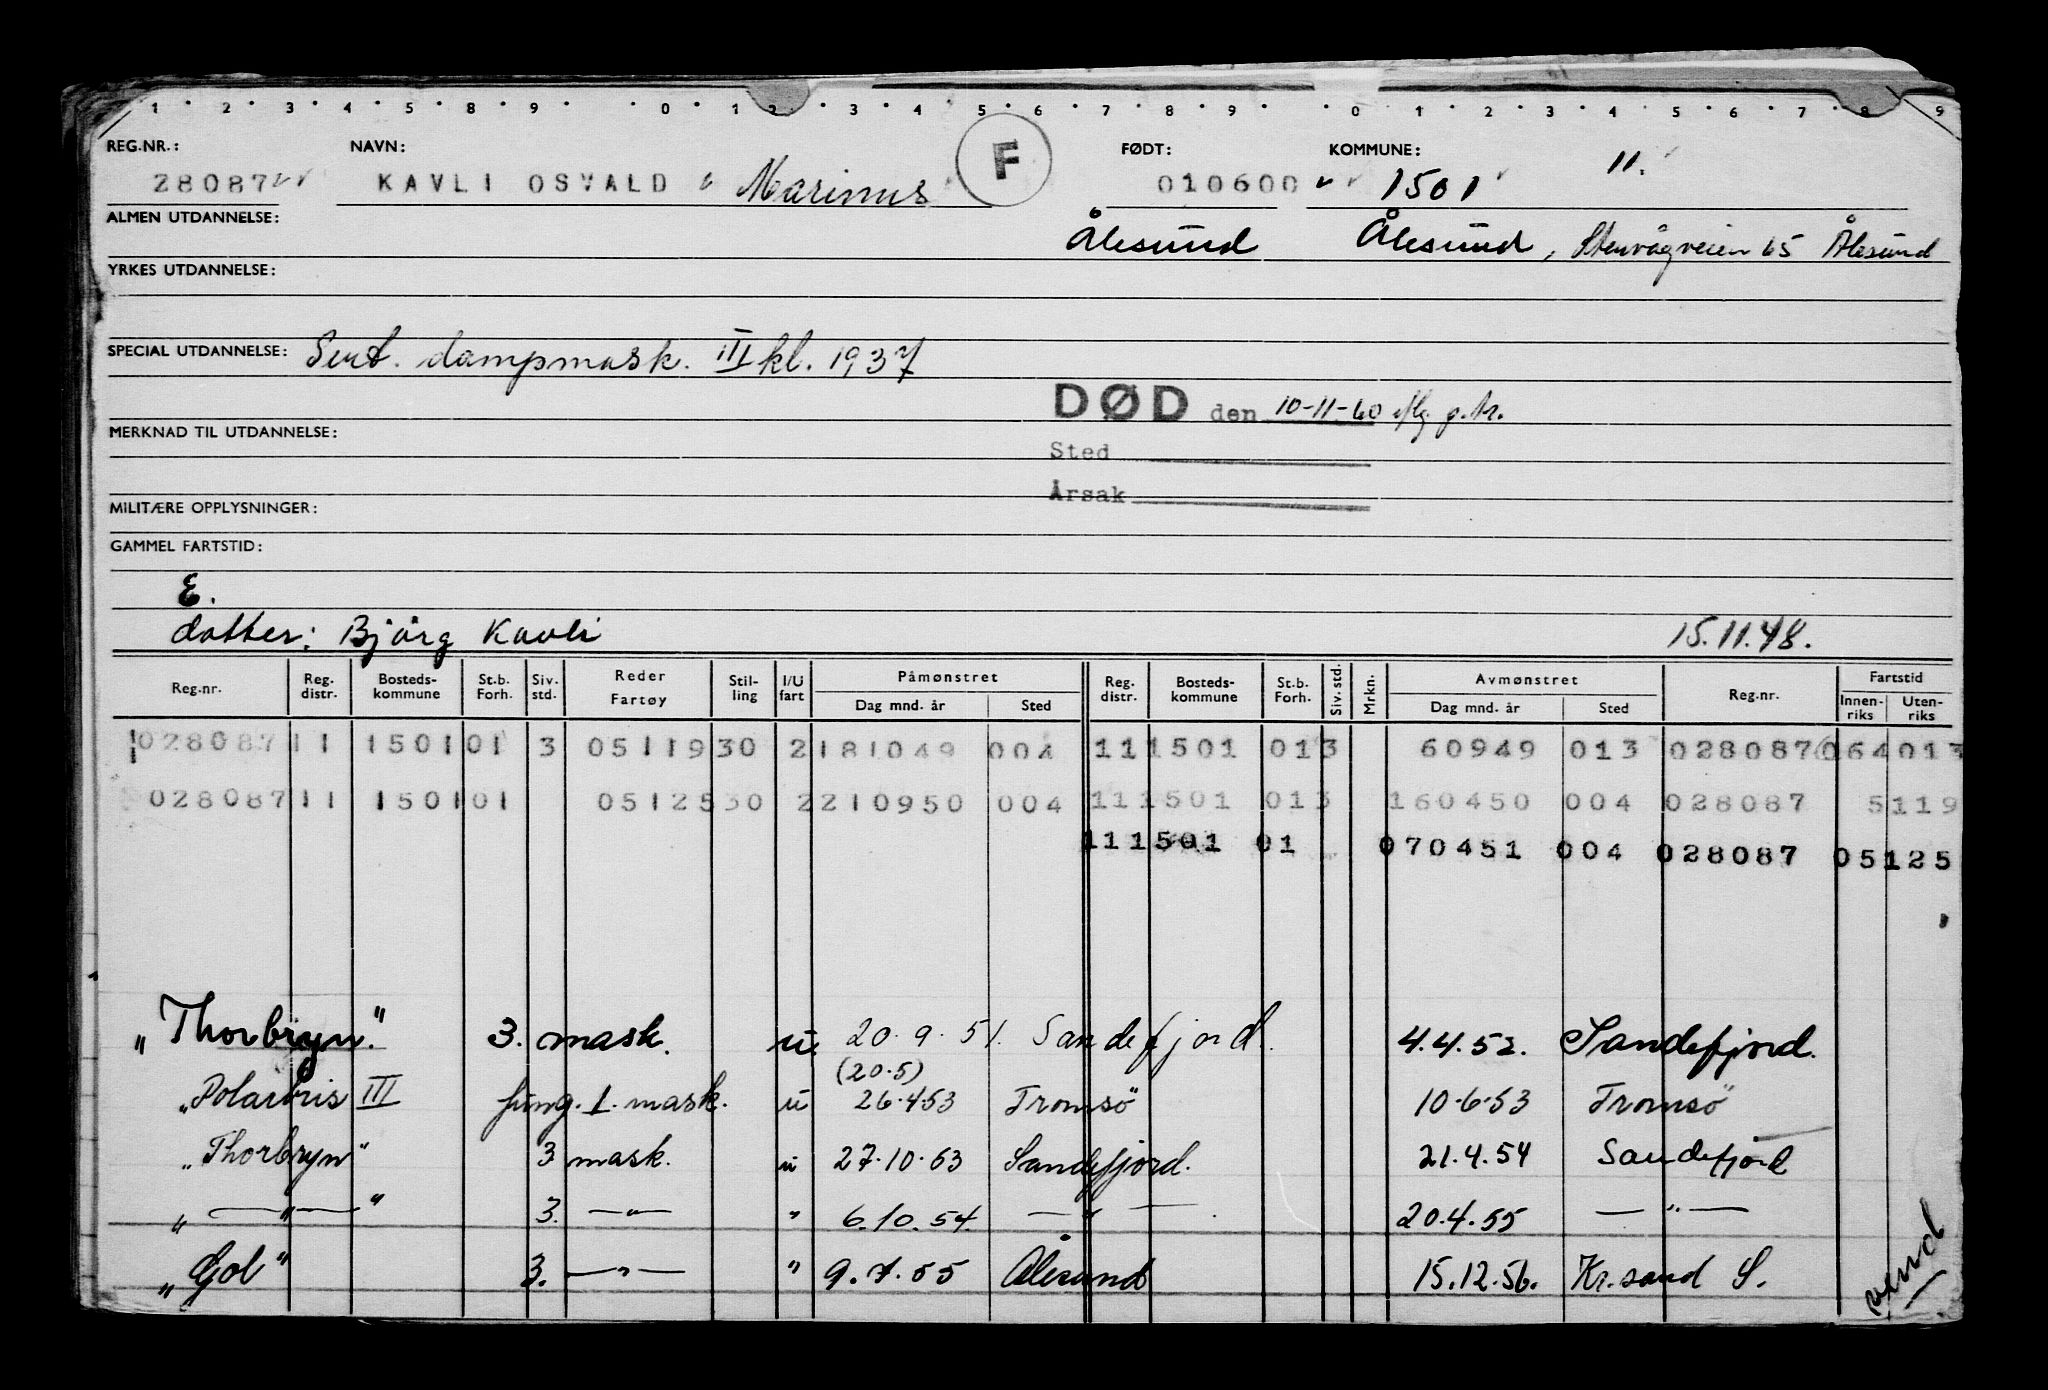 1 2 3 4 5 8 9 0 1 2 3 4 5 6 7 8 9 0 1 2 3 4 5 6 7 8 9
REG.NR.: NAVN: F FØDT: KOMMUNE: 11.
28087 KAVLI OSVALD Marinus 010600 1501
ALMEN UTDANNELSE: Ålesund Ålesund, Stenvågveien 65 Ålesund
YRKES UTDANNELSE:
SPECIAL UTDANNELSE: Sert. dampmask. III kl. 1937
DØD den 10-11-60
MERKNAD TIL UTDANNELSE:
Sted
Årsak
MILITÆRE OPPLYSNINGER:
GAMMEL FARTSTID:
E.
datter: Bjørg Kavli 15.11.48.
Reg.nr. Reg. distr. Bosteds- kommune St.b. Forh. Siv. std. Reder Fartøy Stil- ling I/U fart Påmønstret Dag mnd. år Sted Reg. distr. Bosteds- kommune St.b. Forh. Siv. std. Mrkn. Avmønstret Dag mnd. år Sted Reg.nr. Fartstid Innen- riks Uten- riks
028087 11 1501 01 3 05119 30 2 181049 004 11 1501 01 3 60949 013 028087 064013
028087 11 1501 01 05125 30 2 210950 004 11 1501 01 3 160450 004 028087 5119
11 1501 01 070451 004 028087 05125
"Thorbryn." 3. mask. u. 20.9.51. Sandefjord. 4.4.52. Sandefjord.
(20.5)
"Polarbris III fung. 1. mask. u 26.4.53 Tromsö 10.6.53 Tromsö
"Thorbryn" 3 mask. u 27.10.53 Sandefjord. 21.4.54 Sandefjord
" — " — " 3. — " — " 6.10.54 — " — 20.4.55 — " —
"Gol" 3. — " — " 9.7.55 Ålesund 15.12.56. Kr.sand S.
vend